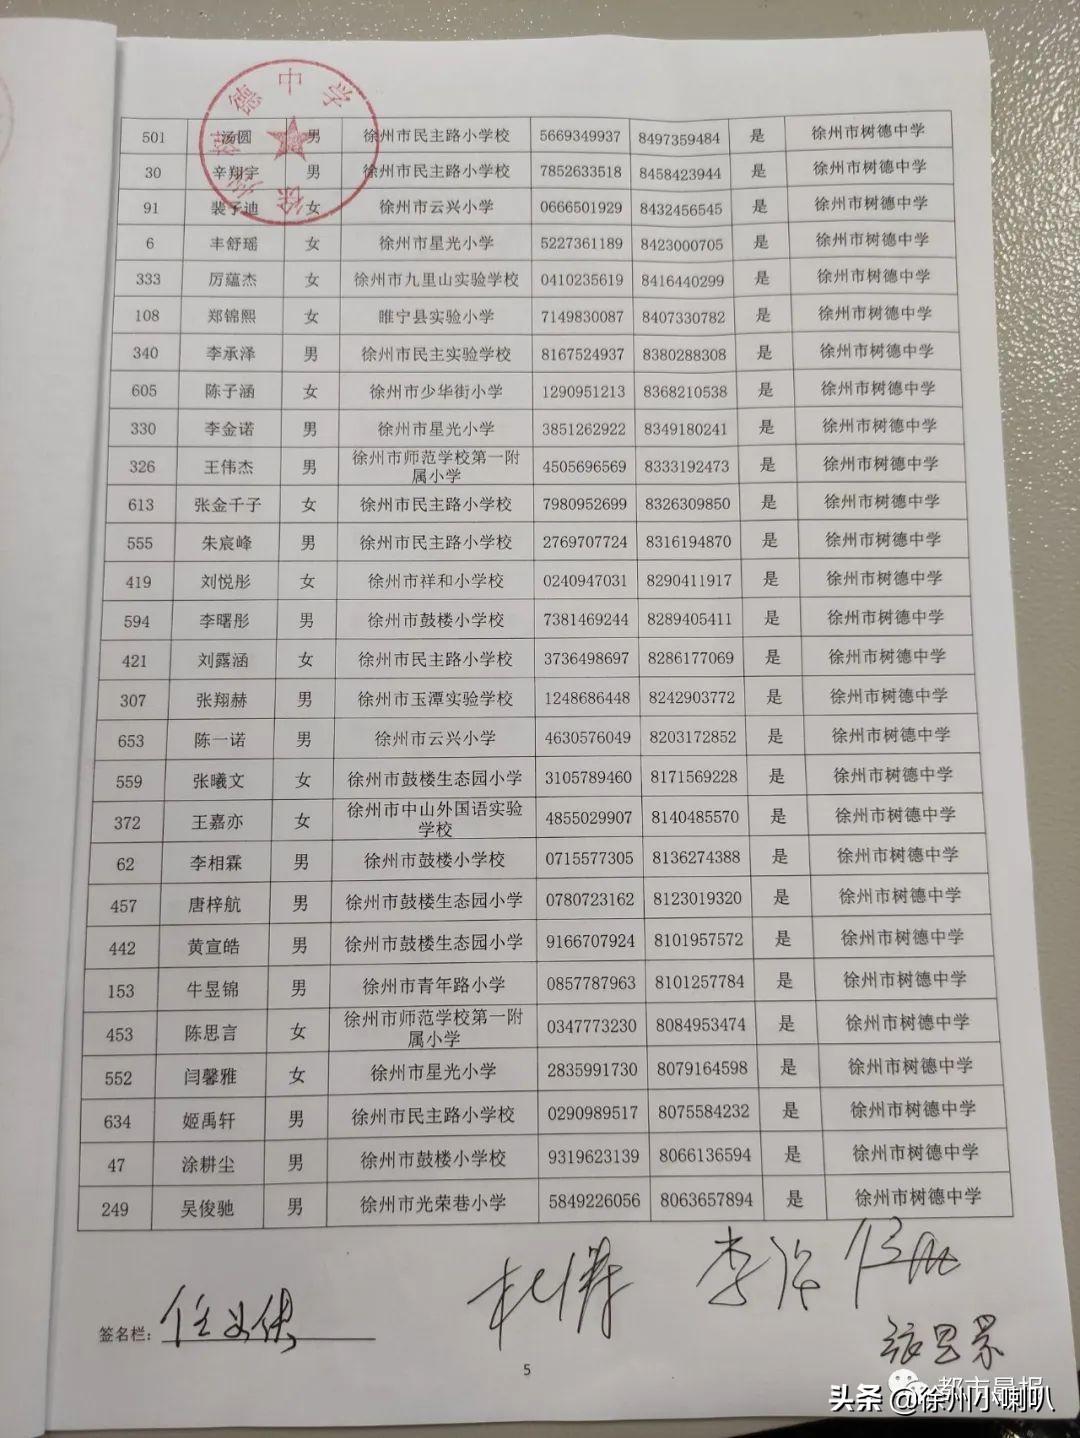 德中学
501 汤圆 男 徐州市民主路小学校 5669349937 8497359484 是 徐州市树德中学
30 辛翔宇 男 徐州市民主路小学校 7852633518 8458423944 是 徐州市树德中学
91 裴予迪 女 徐州市云兴小学 0666501929 8432456545 是 徐州市树德中学
6 丰舒瑶 女 徐州市星光小学 5227361189 8423000705 是 徐州市树德中学
333 厉蕴杰 女 徐州市九里山实验学校 0410235619 8416440299 是 徐州市树德中学
108 郑锦熙 女 睢宁县实验小学 7149830087 8407330782 是 徐州市树德中学
340 李承泽 男 徐州市民主实验学校 8167524937 8380288308 是 徐州市树德中学
605 陈子涵 女 徐州市少华街小学 1290951213 8368210538 是 徐州市树德中学
330 李金诺 男 徐州市星光小学 3851262922 8349180241 是 徐州市树德中学
326 王伟杰 男 徐州市师范学校第一附属小学 4505696569 8333192473 是 徐州市树德中学
613 张金千子 女 徐州市民主路小学校 7980952699 8326309850 是 徐州市树德中学
555 朱宸峰 男 徐州市民主路小学校 2769707724 8316194870 是 徐州市树德中学
419 刘悦彤 女 徐州市祥和小学校 0240947031 8290411917 是 徐州市树德中学
594 李曙彤 男 徐州市鼓楼小学校 7381469244 8289405411 是 徐州市树德中学
421 刘露涵 女 徐州市民主路小学校 3736498697 8286177069 是 徐州市树德中学
307 张翔赫 男 徐州市玉潭实验学校 1248686448 8242903772 是 徐州市树德中学
653 陈一诺 男 徐州市云兴小学 4630576049 8203172852 是 徐州市树德中学
559 张曦文 女 徐州市鼓楼生态园小学 3105789460 8171569228 是 徐州市树德中学
372 王嘉亦 女 徐州市中山外国语实验学校 4855029907 8140485570 是 徐州市树德中学
62 李相霖 男 徐州市鼓楼小学校 0715577305 8136274388 是 徐州市树德中学
457 唐梓航 男 徐州市鼓楼生态园小学 0780723162 8123019320 是 徐州市树德中学
442 黄宣皓 男 徐州市鼓楼生态园小学 9166707924 8101957572 是 徐州市树德中学
153 牛昱锦 男 徐州市青年路小学 0857787963 8101257784 是 徐州市树德中学
453 陈思言 女 徐州市师范学校第一附属小学 0347773230 8084953474 是 徐州市树德中学
552 闫馨雅 女 徐州市星光小学 2835991730 8079164598 是 徐州市树德中学
634 姬禹轩 男 徐州市民主路小学校 0290989517 8075584232 是 徐州市树德中学
47 涂耕尘 男 徐州市鼓楼小学校 9319623139 8066136594 是 徐州市树德中学
249 吴俊驰 男 徐州市光荣巷小学 5849226056 8063657894 是 徐州市树德中学
签名栏：
5
都市晨报
头条 @徐州小喇叭